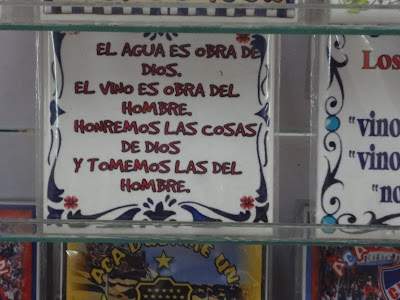 EL AGUA ES OBRA DE
DIOS.
EL VINO ES OBRA DEL
HOMBRE.
HONREMOS LAS COSAS
DE DIOS
Y TOMEMOS LAS DEL
HOMBRE.
Los
"vino
"vino
"no
ACA
UN
ACA